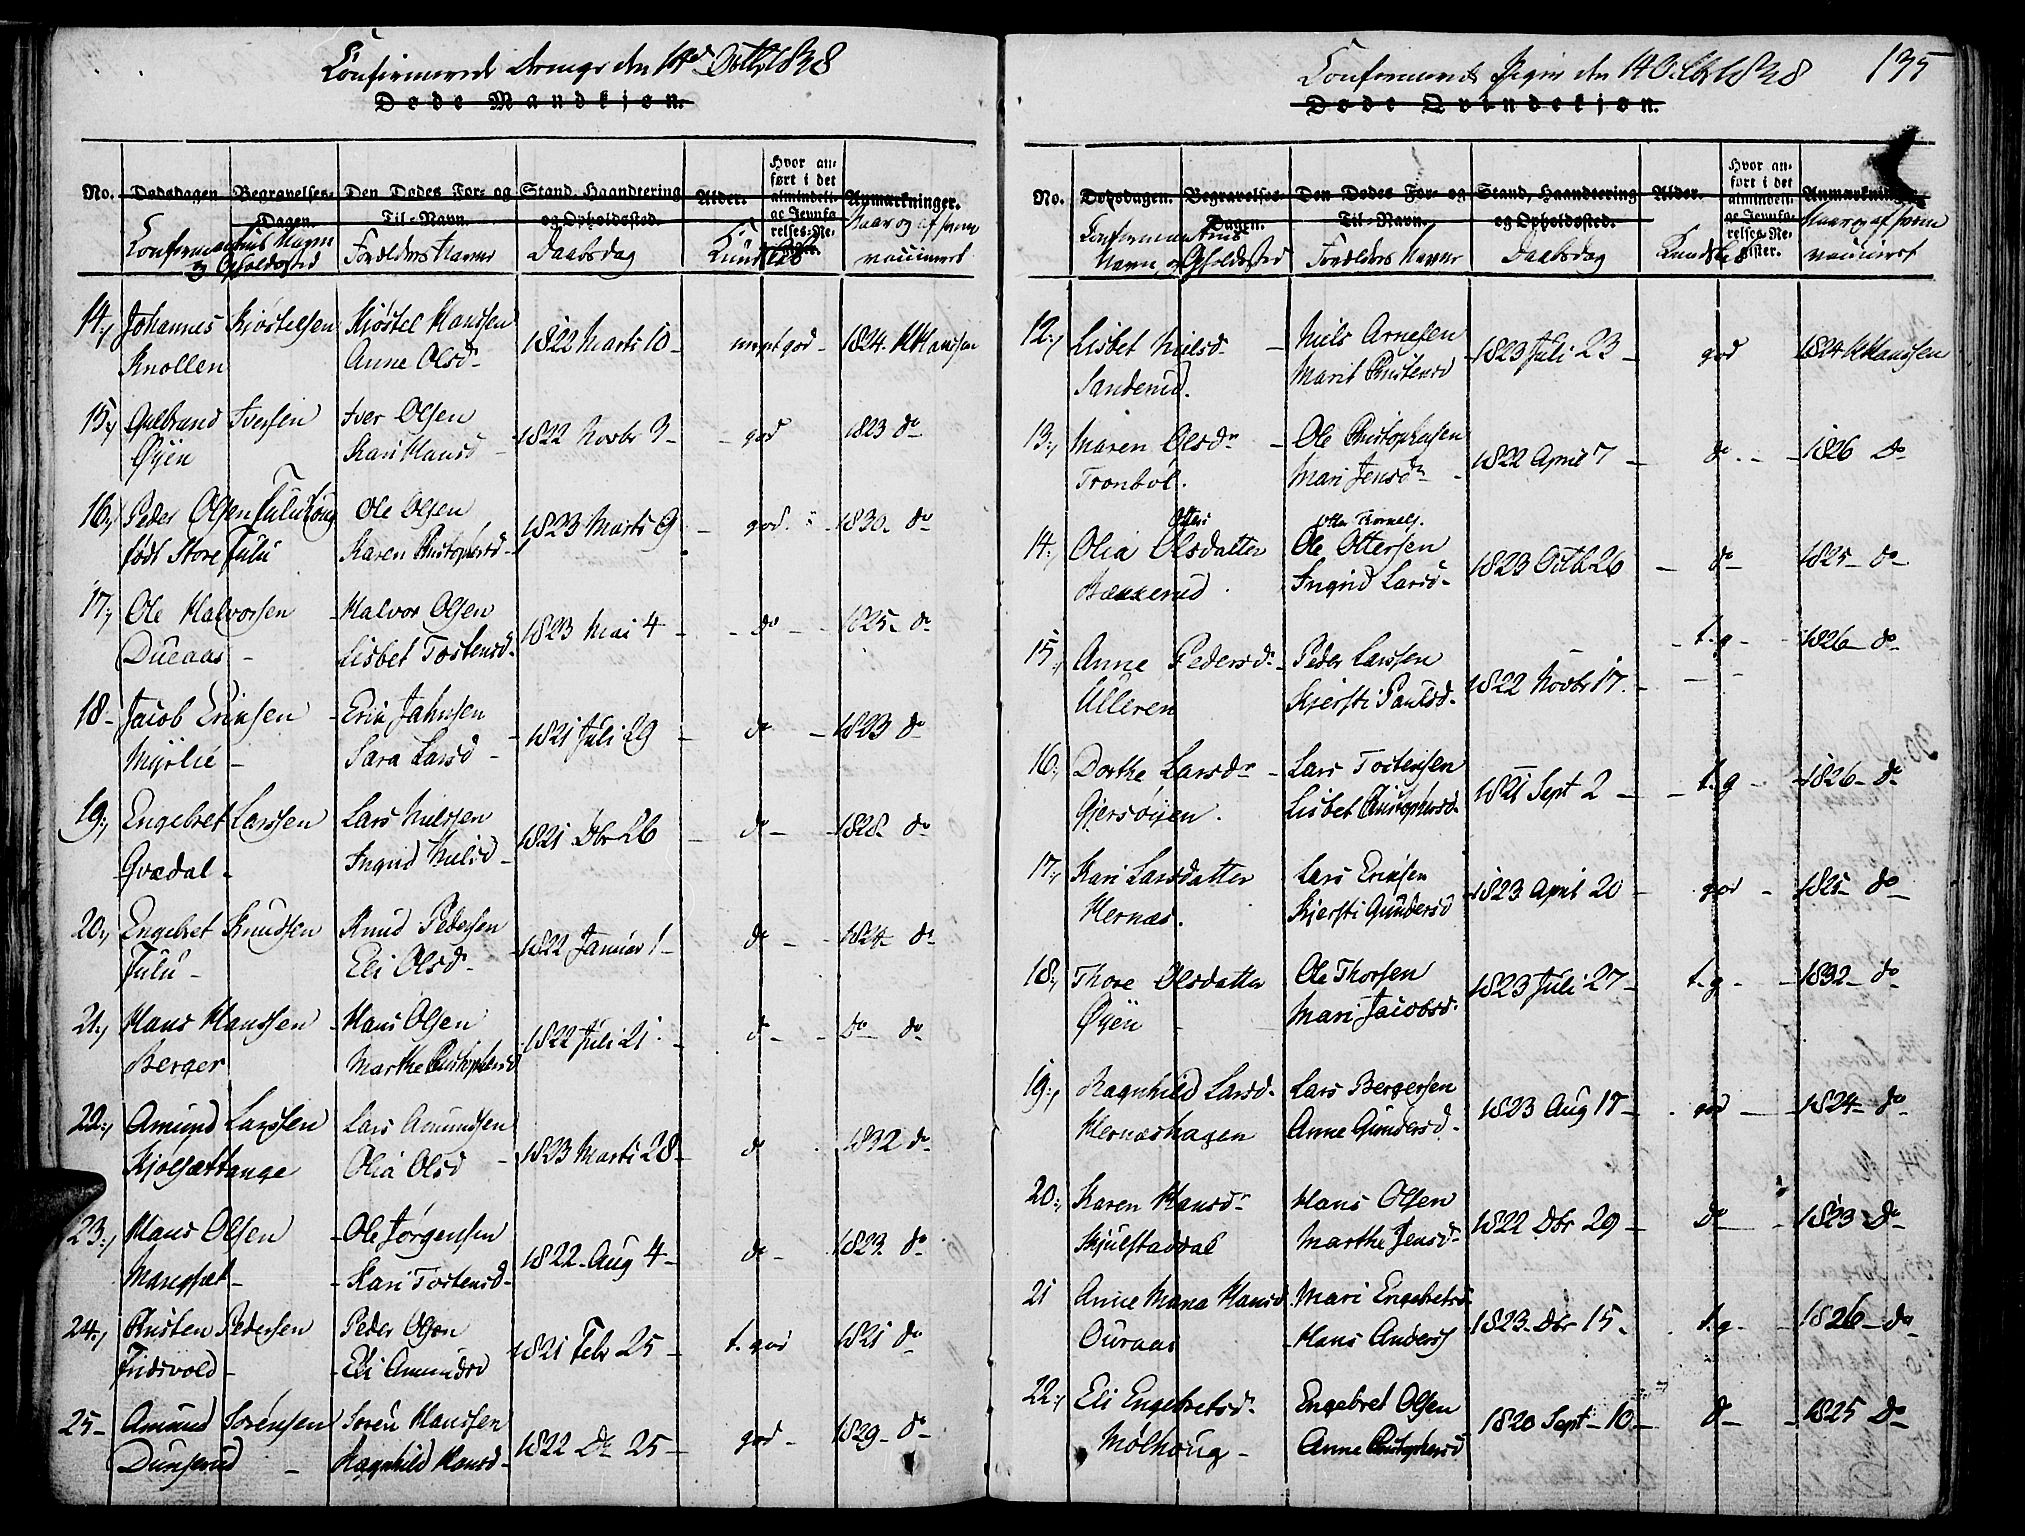 Confirmerede Drenge den 14de Octbr 1838
Døde Mandkjøn.
No. Dødsdagen Begravelses-Dagen. Den Dødes For- og Til-Navn. Stand, Haandtering og Opholdssted. Alder. Hvor anført i det almindelige Jevnførelses-Register. Anmærkninger.
Confirmantens Navn og Opholdssted Forældres Navne Daabsdag Kundskab Naar og af hvem vaccineret
14, Johannes Kjøstelsen Kjøstel Hanssen 1822 Marts 10 - meget god - 1824 K Hanssen
Knollen Anne Olsdr
15, Gulbrand Iversen Iver Olsen 1822 Novbr 3 - god 1823 do
Øyen Kari Hansd
16, Peder Olsen Julu Ole Olsen 1823 Marts 9 - god - 1830 - do
født Store Julu Karen Christophersd
17, Ole Halvorsen Halvor Olsen 1823 Mai 4 - do - 1825 - do
Dueaas - Lisbet Tostensd.
18 - Jacob Eriksen Erik Jahnsen 1821 Juli 29 - do - 1823 do
Myrlie - Sara Larsd -
19, Engebret Larssen Lars Nielssen 1821 Dbr 26 - do - 1828 do
Qvædal - Ingrid Nielsd -
20, Engebret Knudsen Knud Pedersen 1822 Januar 1 - do - 1824 - do
Julu - Eli Olsd -
21, Hans Hanssen Hans Olsen 1822 Juli 21 - do - Do do
Berger Marthe Christophersd
22, Amund Larssen Lars Amundsen 1823 Marts 28 - do 1832 do
Kjølsættange Olia Olsd -
23, Hans Olsen Ole Jørgensen 1822 Aug 4 - do - 1823 do
Mangset - Kari Tostensd -
24, Christen Pedersen Peder Olsen 1821 Febr 25 - t. god 1821 do
Fidsvold - Eli Amundsd
25 - Amund Sørensen Søren Hanssen 1822 Do 25 - god - 1829 - do
Dunserud - Ragnhild Hansd -
Confirmerede Piger den 14 Octbr 1838 135
Døde Qvindekjøn.
No. Dødsdagen. Begravelses-Dagen. Den Dødes For- og Til-Navn. Stand, Haandtering og Opholdssted. Alder. Hvor anført i det almindelige Jevnførelses-Register. Anmærkninger.
Confirmantens Navn og Opholdssted Forældres Navne Daabsdag Kundskab Naar og af hvem vaccineret
12, Lisbet Nielsd - Niels Arnesen 1823 Juli 23 - god 1824 K Hanssen
Sanderud. Marit Christensd
13, Maren Olsdr - Ole Christophersen 1822 April 7 - do - 1826 Do
Tronbøl. Mari Jensdr
Otters Otter Kornels.
14, Olia Olsdatter Ole Ottersen 1823 Octbr 26 - do - 1825 - do
Bækkerud. Ingrid Larsd -
15, Anne Pedersdr Peder Larssen 1822 Novbr 17. - t. g - 1826 - do
Ulleren Kjersti Paulsd -
16, Dorthe Larsdr - Lars Tostensen 1821 Sept 2 - t. g - 1826 - do
Gjersøyen. Lisbet Christophersd
17, Kari Larsdatter Lars Eriksen 1823 April 20 - god - 1825 do
Hernæs. Kjersti Gundersd
18, Thore Olsdatter Ole Thorsen 1823 Juli 27 - t. g - 1832 - do
Øyen - Mari Jacobsd.
19, Ragnhild Larsd. Lars Bergersen 1823 Aug 17 - god - 1824 - do
Hernæshagen Anne Gundersd -
20, Karen Hansdr Hans Olsen 1822 Dbr 29 - Do - 1823 Do
Skjulstaddal Marthe Jensd -
21 Anne Maria Hansd. Mari Engebretsd 1823 Dbr 15 - t. g - 1826 - do
Ouraas Hans Anders
22, Eli Engebretsd. Engebret Olsen 1820 Sept - 10 - do - 1825 Do
Mølhoug - Anne Christophersd